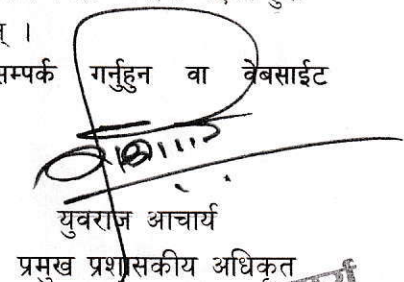 सम्पर्क गर्नुहुन वा वेबसाईट
युवराज आचार्य
प्रमुख प्रशासकीय अधिकृत